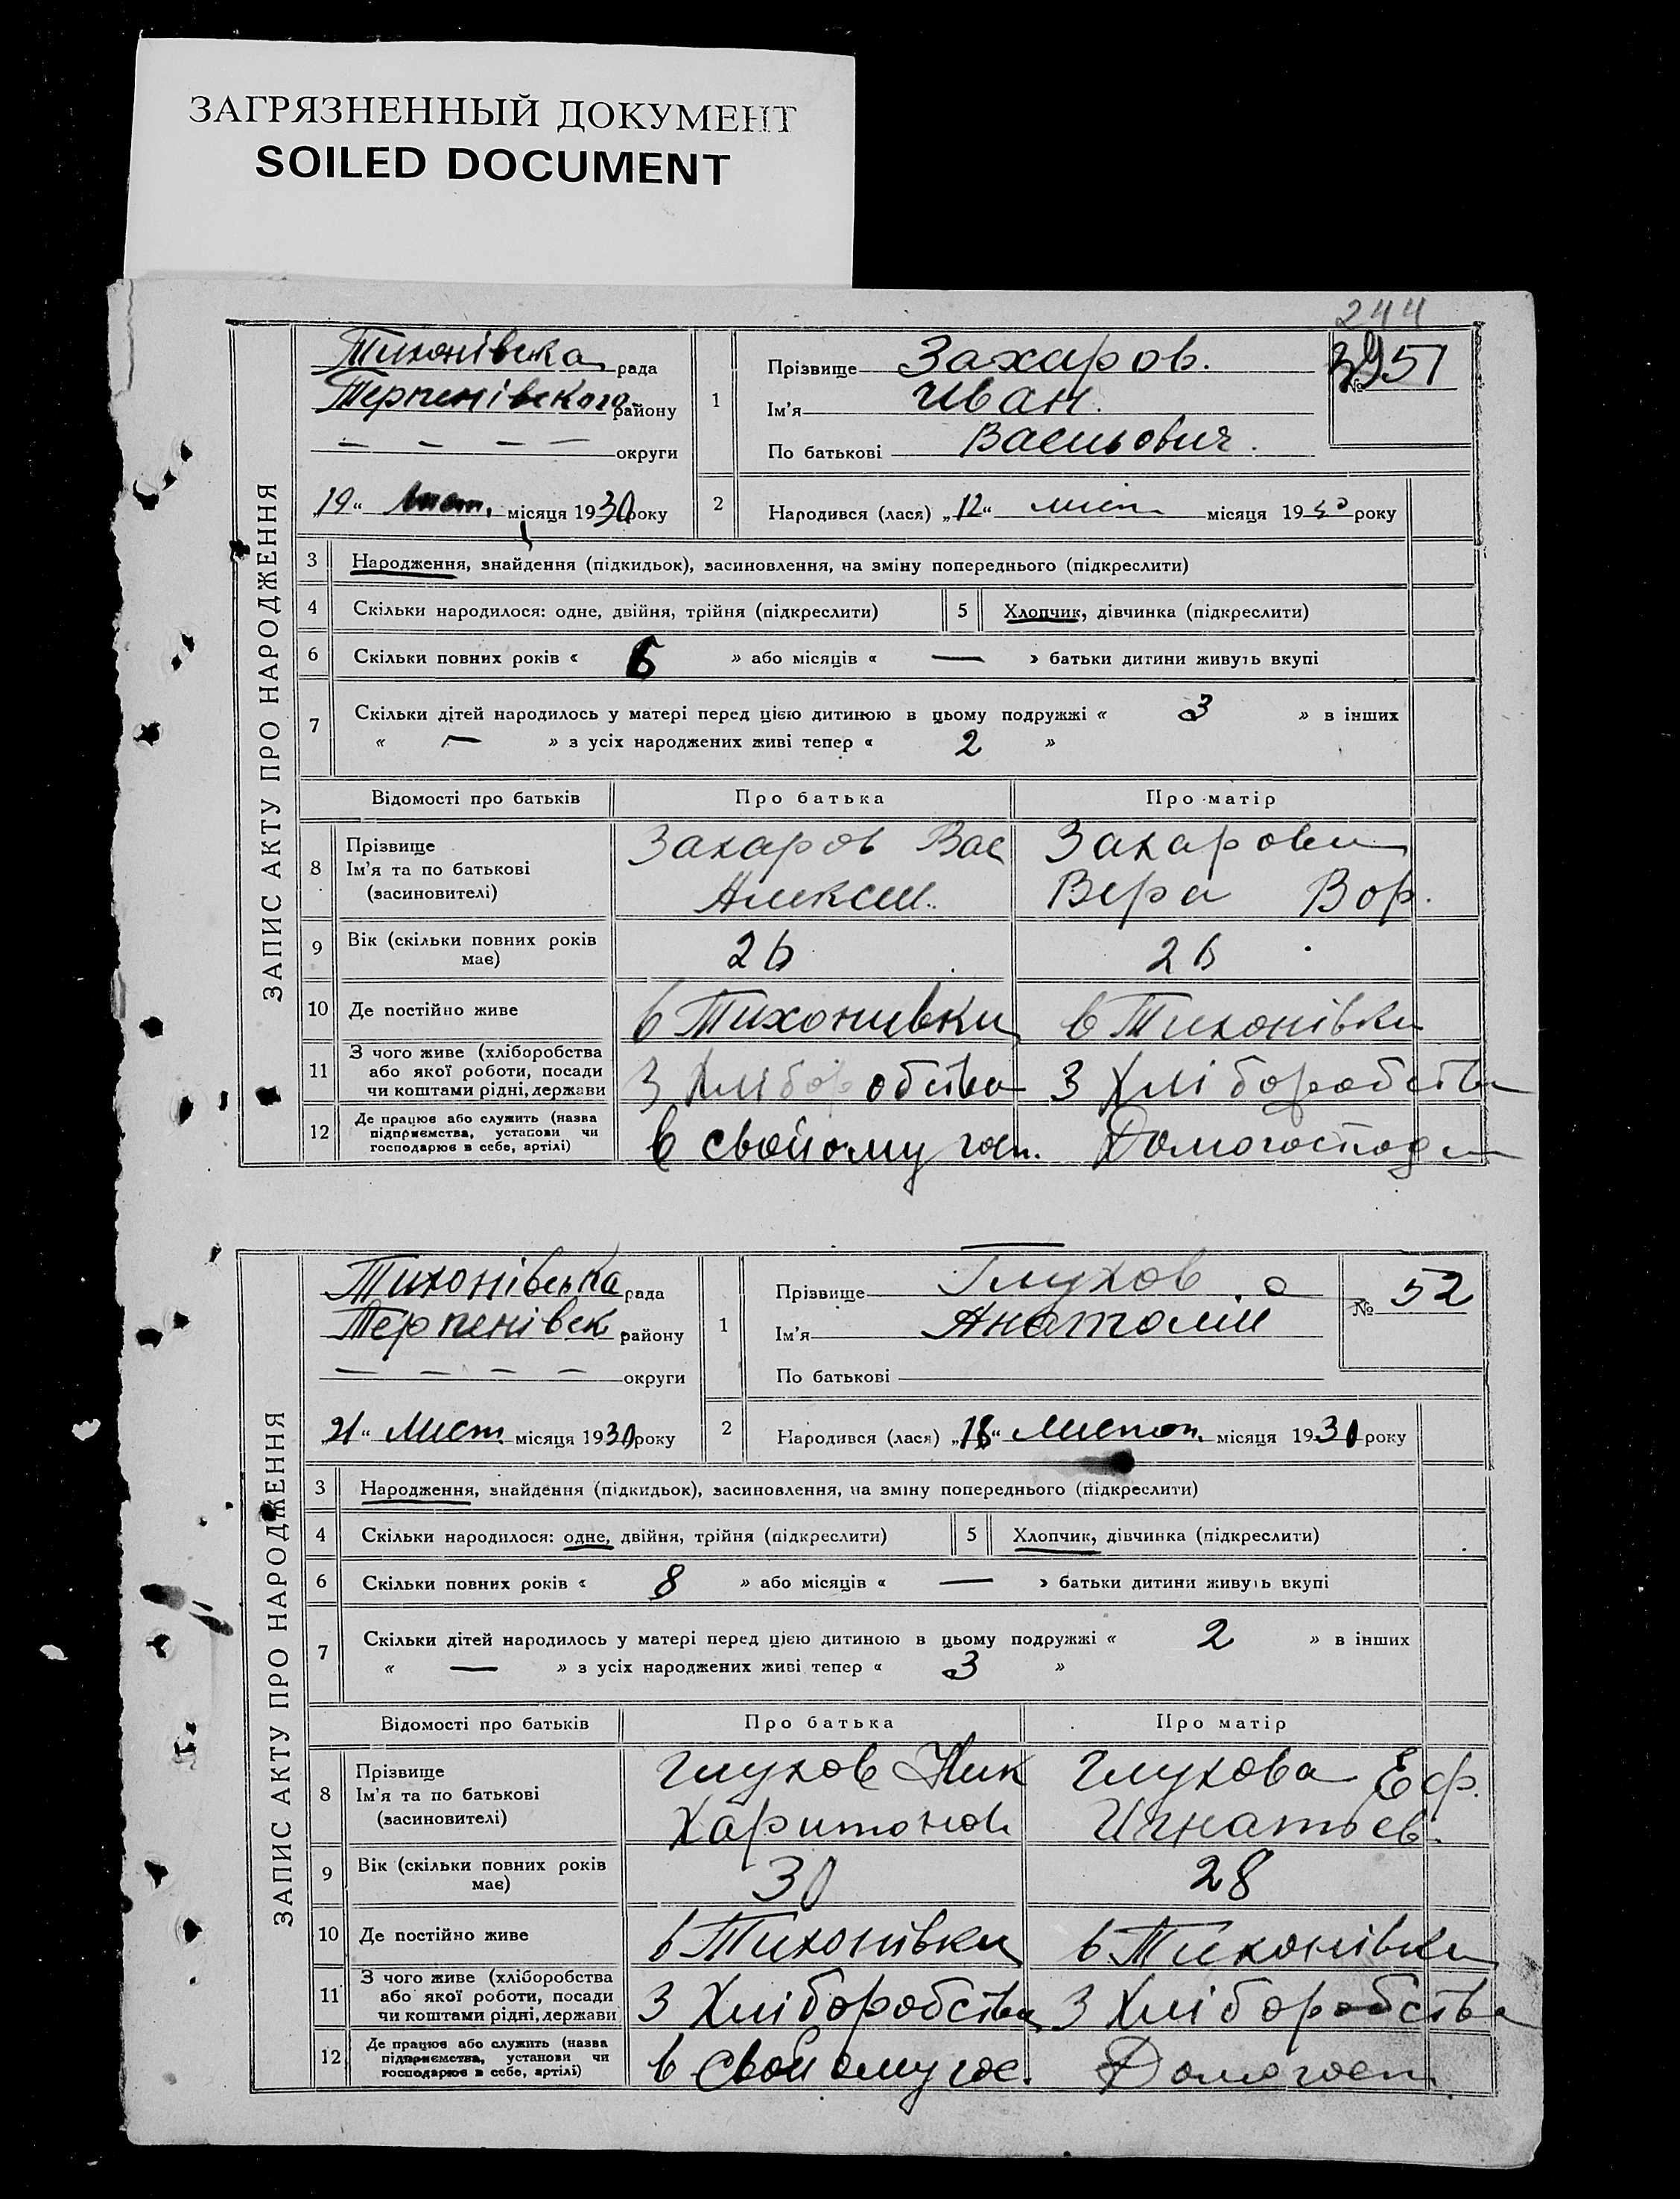 ЗАГРЯЗНЕННЫЙ ДОКУМЕНТ
SOILED DOCUMENT
244
ЗАПИС АКТУ ПРО НАРОДЖЕННЯ
Тихонівска рада
Терпенівского району
— — — — округи
„19“ Лист. місяця 1930 року
1
Прізвище Захаров.
Ім'я Иван.
По батькові Васильович.
№ 51
2 Народився (лася) „12“ лист місяця 1930 року
3 Народження, знайдення (підкидьок), засиновлення, на зміну попереднього (підкреслити)
4 Скільки народилося: одне, двійня, трійня (підкреслити) 5 Хлопчик, дівчинка (підкреслити)
6 Скільки повних років « 6 » або місяців « — » батьки дитини живуть вкупі
7 Скільки дітей народилось у матері перед цією дитиною в цьому подружжі « 3 » в інших
« — » з усіх народжених живі тепер « 2 »
Відомості про батьків Про батька Про матір
8 Прізвище
Ім'я та по батькові
(засиновителі)
Захаров Вас
Алексеи.
Захарови
Вера Вор.
9 Вік (скільки повних років
має)
26 26
10 Де постійно живе в Тихонивки в Тихонівки
11 З чого живе (хліборобства
або якої роботи, посади
чи коштами рідні, держави
З Хліборобства З Хліборобства
12 Де працює або служить (назва
підприємства, установи чи
господарює в себе, артілі)
в свойому госп. Домогоспод-
ЗАПИС АКТУ ПРО НАРОДЖЕННЯ
Тихонівська рада
Терпенівск району
— — — — округи
„21“ Лист. місяця 1930 року
1
Прізвище Глухов
Ім'я Анатолій
По батькові
№ 52
2 Народився (лася) „18“ Листоп. місяця 1930 року
3 Народження, знайдення (підкидьок), засиновлення, на зміну попереднього (підкреслити)
4 Скільки народилося: одне, двійня, трійня (підкреслити) 5 Хлопчик, дівчинка (підкреслити)
6 Скільки повних років « 8 » або місяців « — » батьки дитини живуть вкупі
7 Скільки дітей народилось у матері перед цією дитиною в цьому подружжі « 2 » в інших
« — » з усіх народжених живі тепер « 3 »
Відомості про батьків Про батька Про матір
8 Прізвище
Ім'я та по батькові
(засиновителі)
Глухов Ник
Харитонов
Глухова Еф.
Игнатьев.
9 Вік (скільки повних років
має)
30 28
10 Де постійно живе в Тихонівки в Тихонівки
11 З чого живе (хліборобства
або якої роботи, посади
чи коштами рідні, держави
З Хліборобства З Хліборобства
12 Де працює або служить (назва
підприємства, установи чи
господарює в себе, артілі)
в свойому гос. Домогосп.